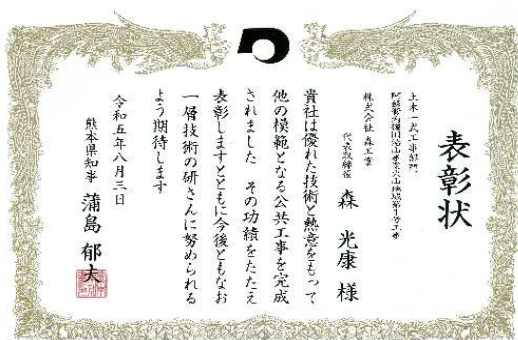 表彰状
土木一式工事部門
株式会社 森工業
代表取締役 森 光康 様
貴社は優れた技術と熱意をもって
他の模範となる公共工事を完成
されました その功績をたたえ
表彰しますとともに今後ともなお
一層技術の研さんに努められる
よう期待します
令和五年八月三日
熊本県知事 蒲島 郁夫